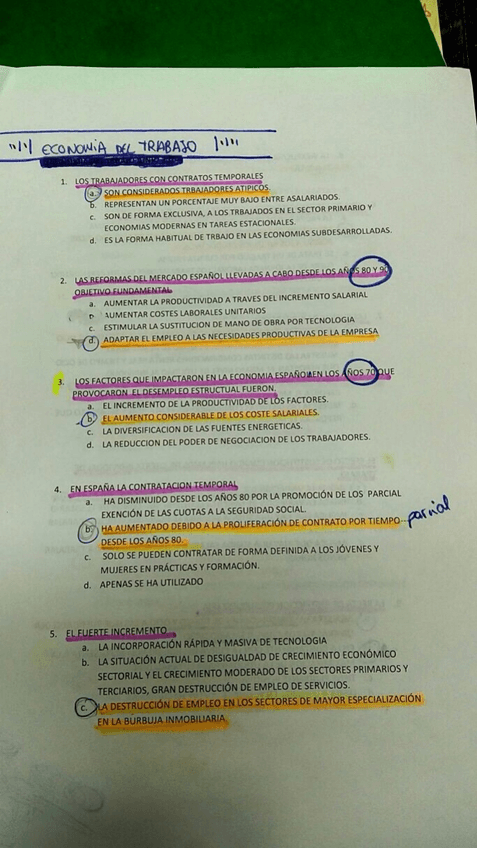 ECONOMIA DEL TRABAJO
1. LOS TRABAJADORES CON CONTRATOS TEMPORALES
a. SON CONSIDERADOS TRBAJADORES ATIPICOS.
b. REPRESENTAN UN PORCENTAJE MUY BAJO ENTRE ASALARIADOS.
c. SON DE FORMA EXCLUSIVA, A LOS TRBAJADOS EN EL SECTOR PRIMARIO Y
ECONOMIAS MODERNAS EN TAREAS ESTACIONALES.
d. ES LA FORMA HABITUAL DE TRBAJO EN LAS ECONOMIAS SUBDESARROLLADAS.
2. LAS REFORMAS DEL MERCADO ESPAÑOL LLEVADAS A CABO DESDE LOS AÑOS 80 Y 90
OBJETIVO FUNDAMENTAL
a. AUMENTAR LA PRODUCTIVIDAD A TRAVES DEL INCREMENTO SALARIAL
AUMENTAR COSTES LABORALES UNITARIOS
c. ESTIMULAR LA SUSTITUCION DE MANO DE OBRA POR TECNOLOGIA
d. ADAPTAR EL EMPLEO A LAS NECESIDADES PRODUCTIVAS DE LA EMPRESA
3. LOS FACTORES QUE IMPACTARON EN LA ECONOMIA ESPAÑOLA EN LOS AÑOS 70 QUE
PROVOCARON EL DESEMPLEO ESTRUCTUAL FUERON.
a. EL INCREMENTO DE LA PRODUCTIVIDAD DE LOS FACTORES.
b. EL AUMENTO CONSIDERABLE DE LOS COSTE SALARIALES.
c. LA DIVERSIFICACION DE LAS FUENTES ENERGETICAS.
d. LA REDUCCION DEL PODER DE NEGOCIACION DE LOS TRABAJADORES.
4. EN ESPAÑA LA CONTRATACION TEMPORAL
a. HA DISMINUIDO DESDE LOS AÑOS 80 POR LA PROMOCIÓN DE LOS PARCIAL
EXENCIÓN DE LAS CUOTAS A LA SEGURIDAD SOCIAL.
b. HA AUMENTADO DEBIDO A LA PROLIFERACIÓN DE CONTRATO POR TIEMPO parcial
DESDE LOS AÑOS 80.
c. SOLO SE PUEDEN CONTRATAR DE FORMA DEFINIDA A LOS JÓVENES Y
MUJERES EN PRÁCTICAS Y FORMACIÓN.
d. APENAS SE HA UTILIZADO
5. EL FUERTE INCREMENTO
a. LA INCORPORACIÓN RÁPIDA Y MASIVA DE TECNOLOGIA
b. LA SITUACIÓN ACTUAL DE DESIGUALDAD DE CRECIMIENTO ECONÓMICO
SECTORIAL Y EL CRECIMIENTO MODERADO DE LOS SECTORES PRIMARIOS Y
TERCIARIOS, GRAN DESTRUCCIÓN DE EMPLEO DE SERVICIOS.
c. LA DESTRUCCIÓN DE EMPLEO EN LOS SECTORES DE MAYOR ESPECIALIZACIÓN
EN LA BURBUJA INMOBILIARIA